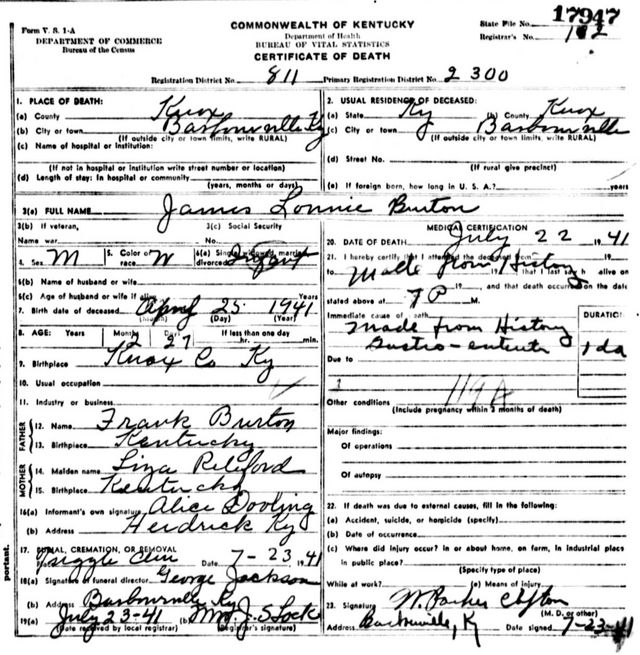 Form V. S. 1-A
DEPARTMENT OF COMMERCE
Bureau of the Census
COMMONWEALTH OF KENTUCKY
Department of Health
BUREAU OF VITAL STATISTICS
CERTIFICATE OF DEATH
State File No. 17947
Registrar's No. 102
Registration District No. 811 Primary Registration District No. 2300
1. PLACE OF DEATH:
(a) County Knox
(b) City or town Barbourville Ky
(If outside city or town limits, write RURAL)
(c) Name of hospital or Institution:
(If not in hospital or institution write street number or location)
(d) Length of stay: In hospital or community
(years, months or days)
2. USUAL RESIDENCE OF DECEASED:
(a) State Ky (b) County Knox
(c) City or town Barbourville
(If outside city or town limits, write RURAL)
(d) Street No.
(If rural give precinct)
(e) If foreign born, how long in U. S. A.? years
3(a) FULL NAME James Lonnie Burton
3(b) If veteran,
Name war
3(c) Social Security
No.
4. Sex M 5. Color or race W 6(a) Single, widowed, married, divorced Infant
6(b) Name of husband or wife
6(c) Age of husband or wife if alive Years
7. Birth date of deceased April 25 1941
(Month) (Day) (Year)
8. AGE: Years Months Days If less than one day
2 27 hr. min.
9. Birthplace Knox Co Ky
10. Usual occupation
11. Industry or business
FATHER
12. Name Frank Burton
13. Birthplace Kentucky
MOTHER
14. Maiden name Liza Reliford
15. Birthplace Kentucky
16(a) Informant's own signature Alice Dooling
(b) Address Heidrick Ky
17. BURIAL, CREMATION, OR REMOVAL
Date 7-23 1941
18(a) Signature of funeral director George Jackson
(b) Address Barbourville, Ky
19(a) July 23-41 (b) Mrs J. S. Lock
(Date received by local registrar) (Registrar's signature)
MEDICAL CERTIFICATION
20. DATE OF DEATH July 22 1941
21. I hereby certify that I attended the deceased from 19
to Made from History 19 that I last saw h alive on
19, and that death occurred on the date
stated above at 7 P M.
Immediate cause of death
DURATION
Made from History
Gastro-enteritis 1 da
Due to
119A
Other conditions
(Include pregnancy within 3 months of death)
Major findings:
Of operations
Of autopsy
22. If death was due to external causes, fill in the following:
(a) Accident, suicide, or homicide (specify)
(b) Date of occurrence
(c) Where did injury occur? in or about home, on farm, in industrial place
in public place?
(Specify type of place)
While at work? (e) Means of injury
23. Signature W. Parker Clifton
(M. D. or other)
Address Barbourville, K Date signed 7-23-41
portant.